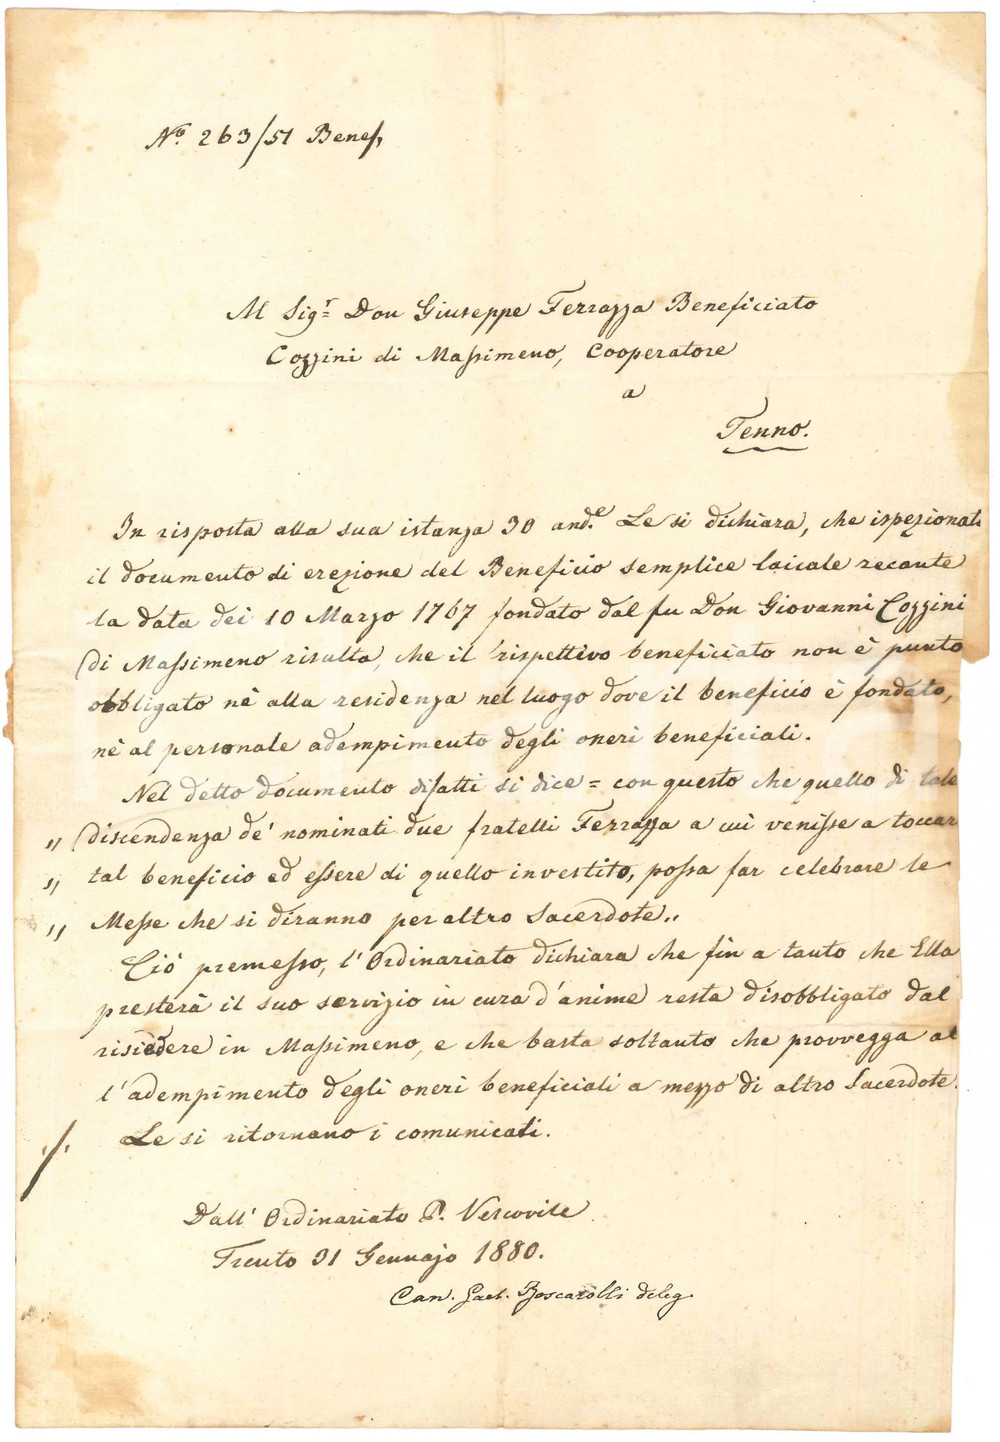 No. 263/51 Benef.
Al Sigr. Don Giuseppe Ferrazza Beneficiato
Cozzini di Massimeno, Cooperatore
a
Tenno.
In risposta alla sua istanza 30 and.e Le si dichiara, che ispezionato
il documento di erezione del Beneficio semplice laicale recante
la data dei 10 Marzo 1767 fondato dal fu Don Giovanni Cozzini
di Massimeno risulta, che il rispettivo beneficiato non è punto
obbligato nè alla residenza nel luogo dove il beneficio è fondato,
nè al personale adempimento degli oneri beneficiali.
Nel detto documento difatti si dice = con questo che quello di tale
„ discendenza de' nominati due fratelli Ferrazza a cui venisse a toccar
„ tal beneficio ed essere di quello investito, possa far celebrare le
„ Messe che si diranno per altro Sacerdote„.
Ciò premesso, l'Ordinariato dichiara che fin a tanto che Ella
presterà il suo servizio in cura d'anime resta disobbligato dal
risiedere in Massimeno, e che basta soltanto che provvegga al
l'adempimento degli oneri beneficiali a mezzo di altro Sacerdote.
./. Le si ritornano i comunicati.
Dall' Ordinariato P. Vescovile
Trento 31 Gennajo 1880.
Can. Gaet. Boscarolli deleg.